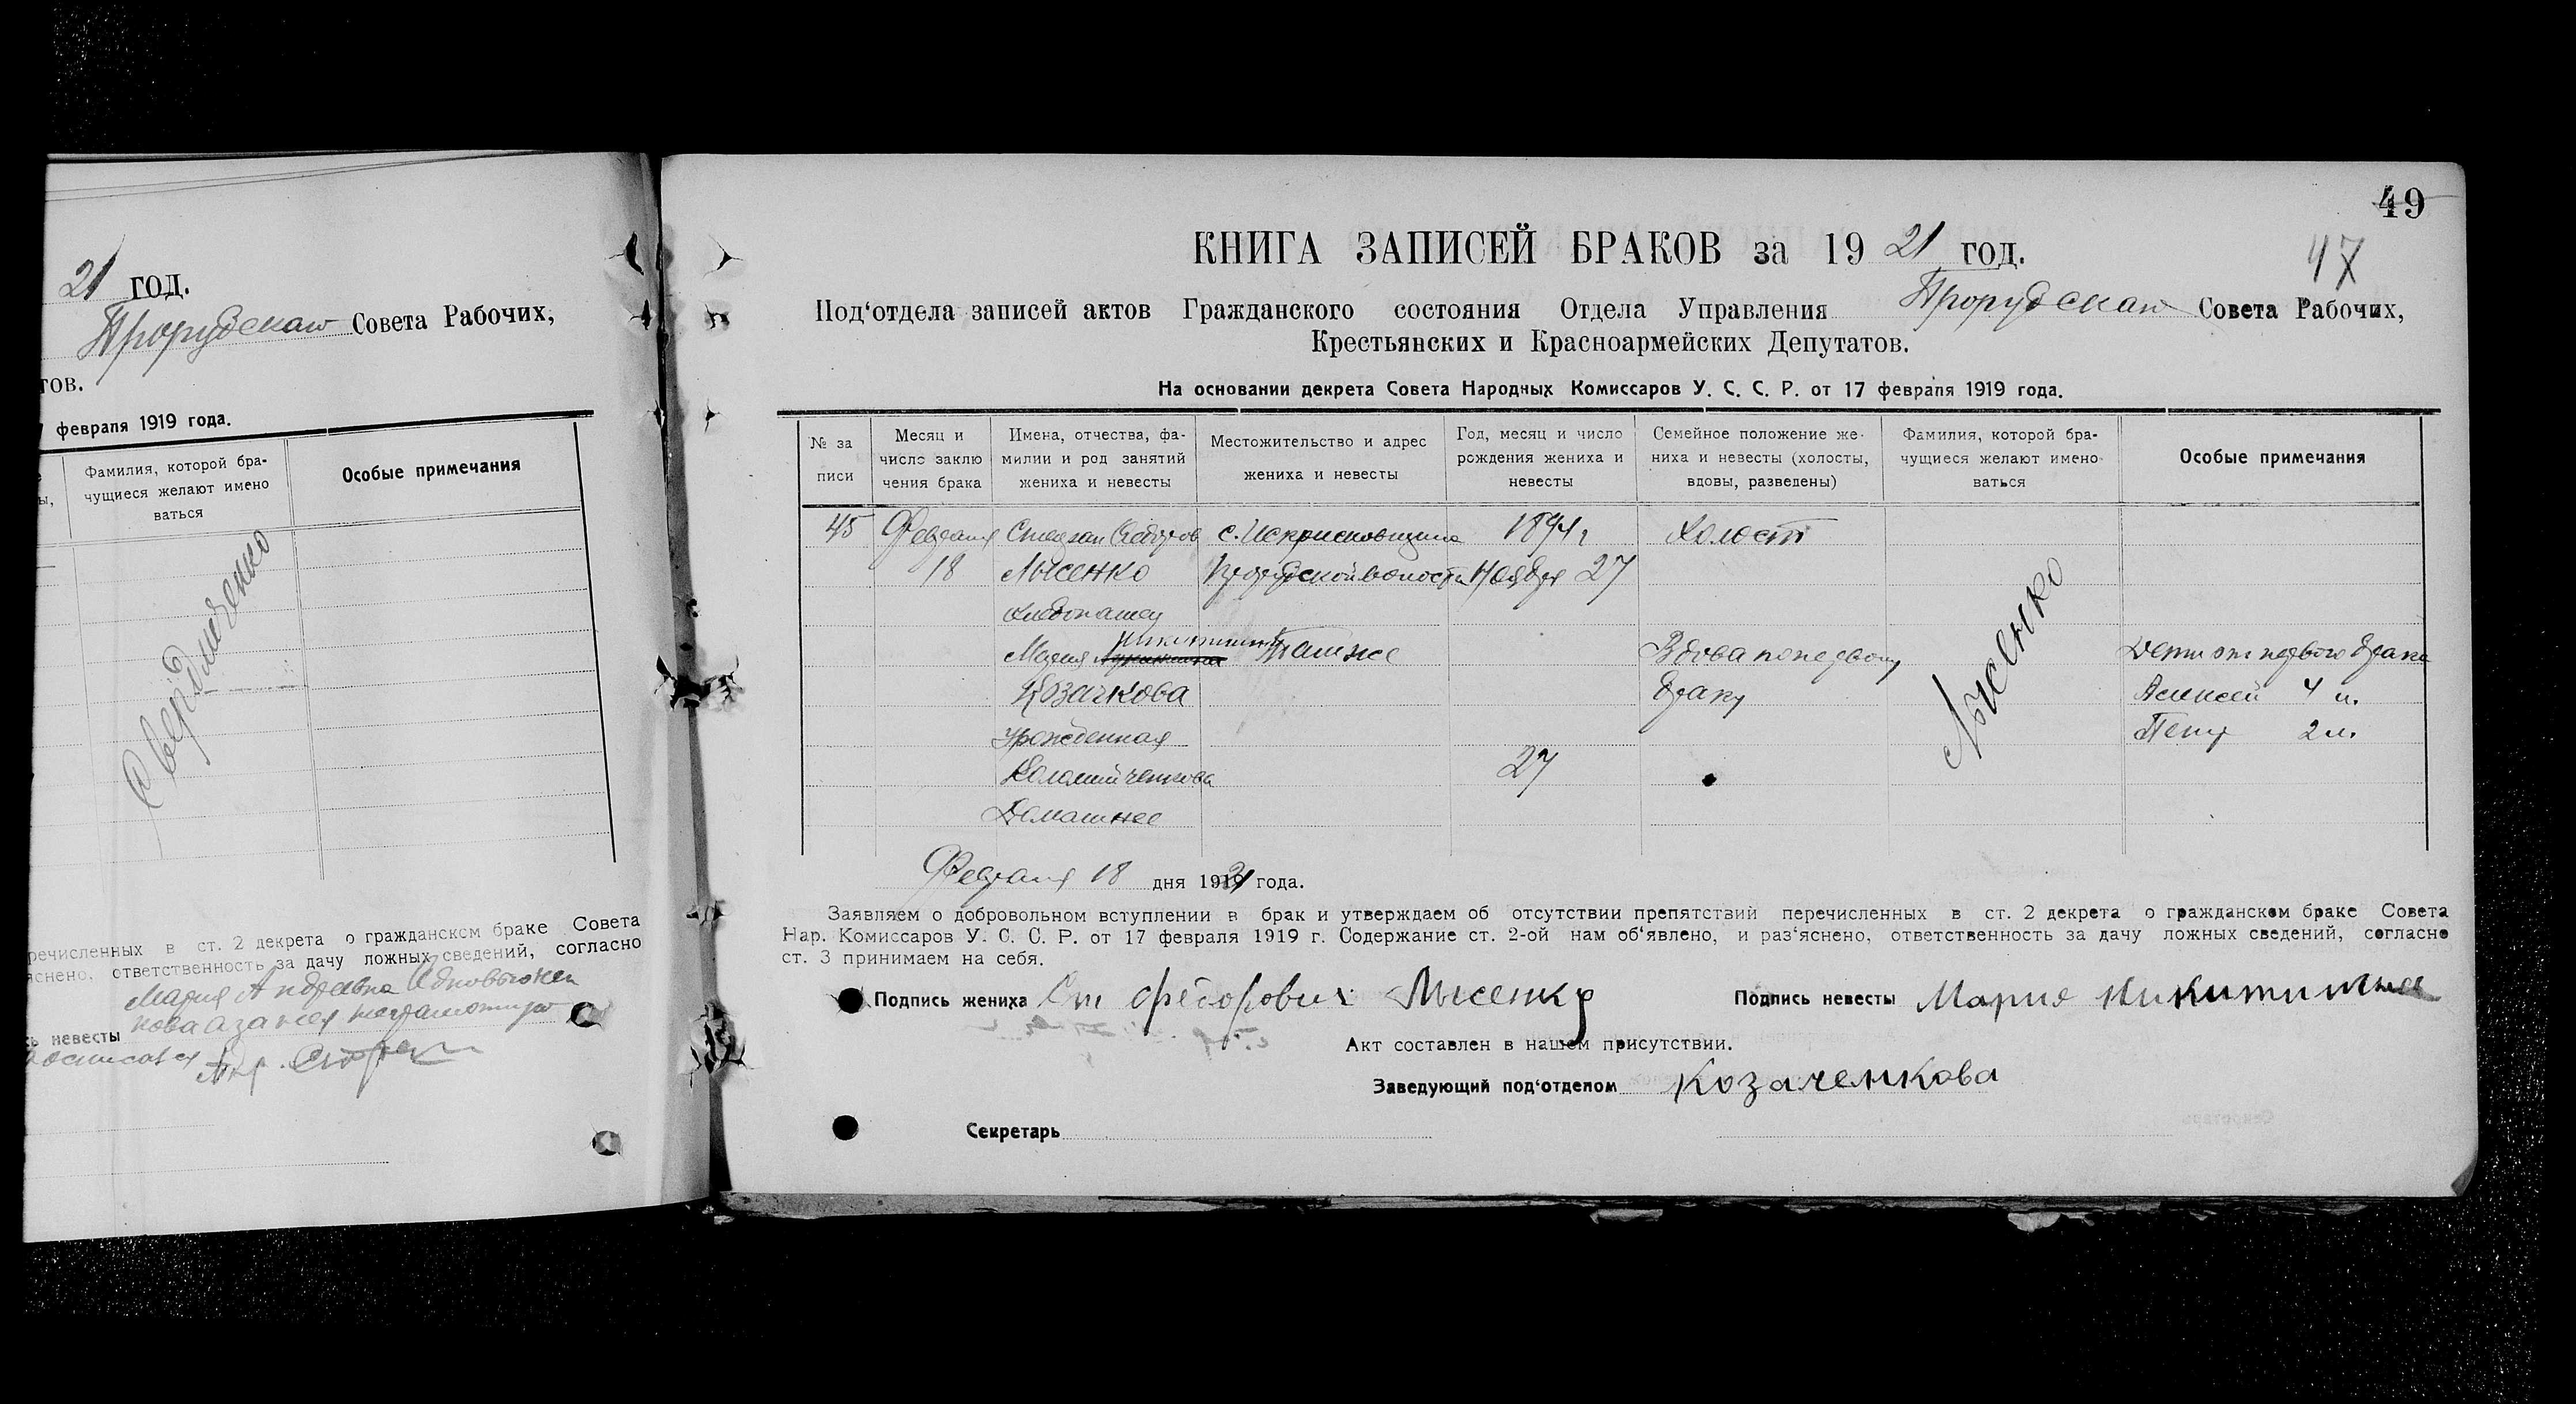 21 год.
Прорубскаго Совета Рабочих,
тов.
февраля 1919 года.
Фамилия, которой бра-
чущиеся желают имено
ваться
Особые примечания
ы,
речисленных в ст. 2 декрета о гражданском браке Совета
яснено, ответственность за дачу ложных сведений, согласно
Мария Андреевна
ь невесты
49
47
КНИГА ЗАПИСЕЙ БРАКОВ за 1921 год.
Под‘отдела записей актов Гражданского состояния Отдела Управления Прорубскаго Совета Рабочих,
Крестьянских и Красноармейских Депутатов.
На основании декрета Совета Народных Комиссаров У. С. С. Р. от 17 февраля 1919 года.
№ за
писи
Месяц и
число заклю
чения брака
Имена, отчества, фа-
милии и род занятий
жениха и невесты
Местожительство и адрес
жениха и невесты
Год, месяц и число
рождения жениха и
невесты
Семейное положение же-
ниха и невесты (холосты,
вдовы, разведены)
Фамилия, которой бра-
чущиеся желают имено-
ваться
Особые примечания
45 Февраля Степан Федоров с. Искрисковщина 1894 г Холост
18 Лысенко Прорубской волости Ноября 27
хлебопашец
Мария Никитишна Там же Вдова по первому Дети от первого брака
Козачкова браку Алексей 4 л.
Урожденная Петр 2 л.
Коломийченкова 27
Домашнее
Лысенко
Февраля 18 дня 1921 года.
Заявляем о добровольном вступлении в брак и утверждаем об отсутствии препятствий перечисленных в ст. 2 декрета о гражданском браке Совета
Нар. Комиссаров У. С. С. Р. от 17 февраля 1919 г. Содержание ст. 2-ой нам об‘явлено, и раз‘яснено, ответственность за дачу ложных сведений, согласно
ст. 3 принимаем на себя.
Подпись жениха Сте Федорович Лысенко Подпись невесты Мария Никитишна
Акт составлен в нашем присутствии.
Заведующий под‘отделом Козаченкова
Секретарь